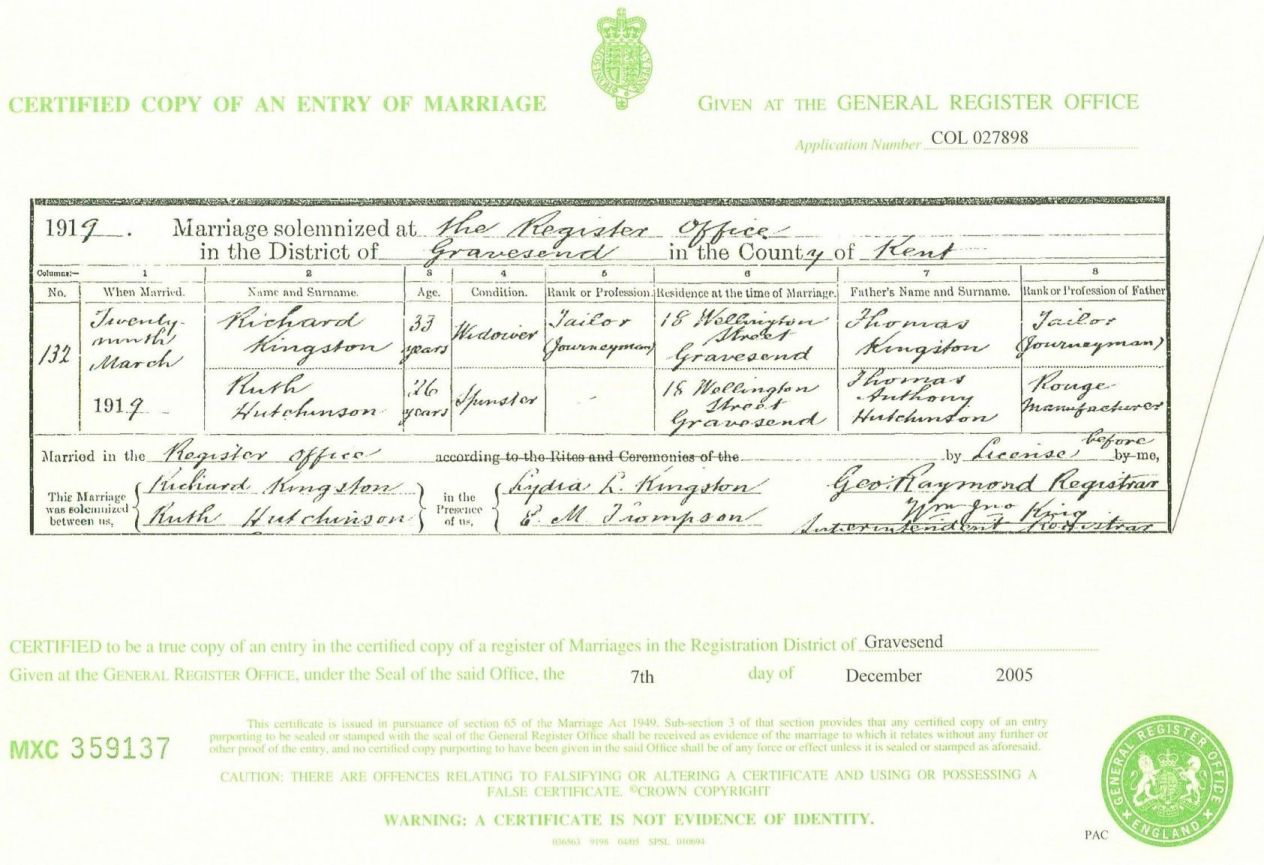 CERTIFIED COPY OF AN ENTRY OF MARRIAGE
GIVEN AT THE GENERAL REGISTER OFFICE
Application Number COL 027898
1919. Marriage solemnized at the Register Office
in the District of Gravesend in the County of Kent
Columns:— 1 2 3 4 5 6 7 8
No. When Married. Name and Surname. Age. Condition. Rank or Profession. Residence at the time of Marriage. Father's Name and Surname. Rank or Profession of Father
132
Twenty-
ninth
March
1919
Richard
Kingston
33
years
Widower
Tailor
(Journeyman)
18 Wellington
Street
Gravesend
Thomas
Kingston
Tailor
(Journeyman)
Ruth
Hutchinson
26
years
Spinster
-
18 Wellington
Street
Gravesend
Thomas
Anthony
Hutchinson
Rouge
Manufacturer
Married in the Register Office according to the Rites and Ceremonies of the by License before by me,
This Marriage
was solemnized
between us,
Richard Kingston
Ruth Hutchinson
in the
Presence
of us,
Lydia L. Kingston
E. M Trompson
Geo. Raymond Registrar
Wm Jno King
Superintendent Registrar
CERTIFIED to be a true copy of an entry in the certified copy of a register of Marriages in the Registration District of Gravesend
Given at the GENERAL REGISTER OFFICE, under the Seal of the said Office, the 7th day of December 2005
MXC 359137
This certificate is issued in pursuance of section 65 of the Marriage Act 1949. Sub-section 3 of that section provides that any certified copy of an entry
purporting to be sealed or stamped with the seal of the General Register Office shall be received as evidence of the marriage to which it relates without any further or
other proof of the entry, and no certified copy purporting to have been given in the said Office shall be of any force or effect unless it is sealed or stamped as aforesaid.
CAUTION: THERE ARE OFFENCES RELATING TO FALSIFYING OR ALTERING A CERTIFICATE AND USING OR POSSESSING A
FALSE CERTIFICATE. ©CROWN COPYRIGHT
WARNING: A CERTIFICATE IS NOT EVIDENCE OF IDENTITY.
036563 9196 04/05 SPSL 010694
PAC
GENERAL REGISTER OFFICE
ENGLAND